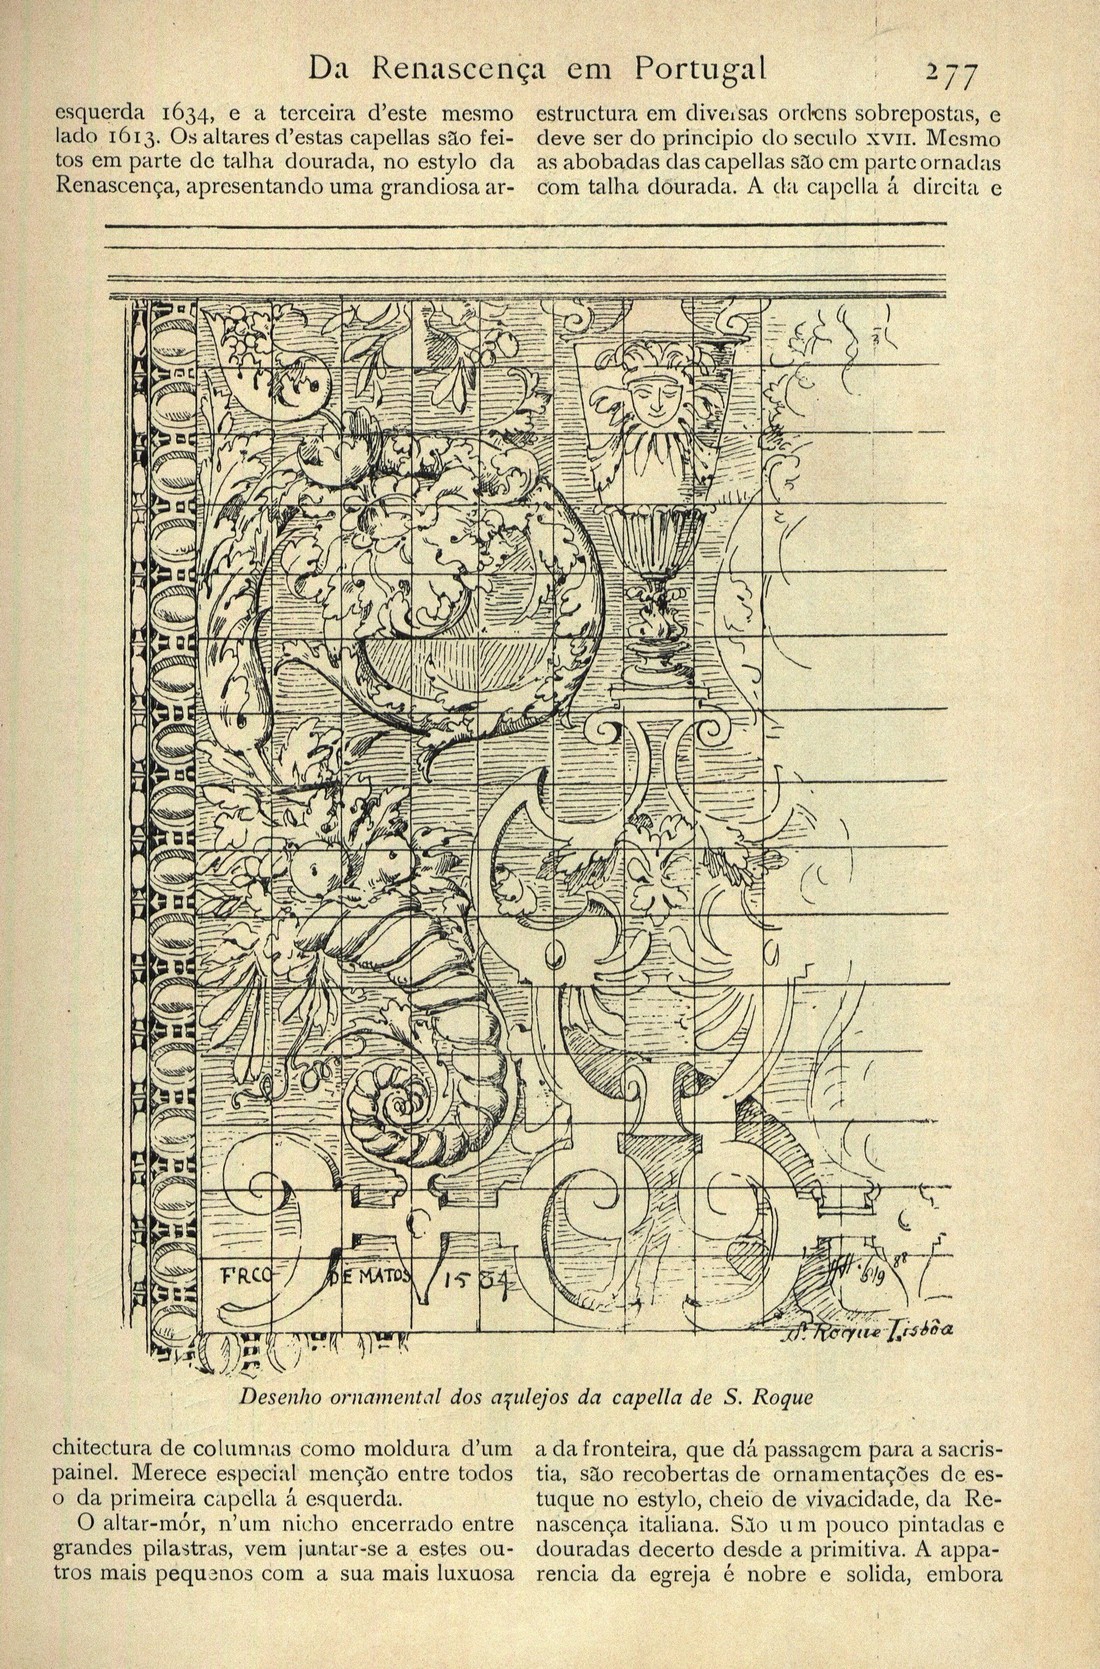 Da Renascença em Portugal 277
esquerda 1634, e a terceira d'este mesmo
lado 1613. Os altares d'estas capellas são fei-
tos em parte de talha dourada, no estylo da
Renascença, apresentando uma grandiosa ar-
estructura em diversas ordens sobrepostas, e
deve ser do principio do seculo XVII. Mesmo
as abobadas das capellas são em parte ornadas
com talha dourada. A da capella á direita e
FRCO DE MATOS 1584
S. Roque Lisbôa
Desenho ornamental dos azulejos da capella de S. Roque
chitectura de columnas como moldura d'um
painel. Merece especial menção entre todos
o da primeira capella á esquerda.
O altar-mór, n'um nicho encerrado entre
grandes pilastras, vem juntar-se a estes ou-
tros mais pequenos com a sua mais luxuosa
a da fronteira, que dá passagem para a sacris-
tia, são recobertas de ornamentações de es-
tuque no estylo, cheio de vivacidade, da Re-
nascença italiana. São um pouco pintadas e
douradas decerto desde a primitiva. A appa-
rencia da egreja é nobre e solida, embora